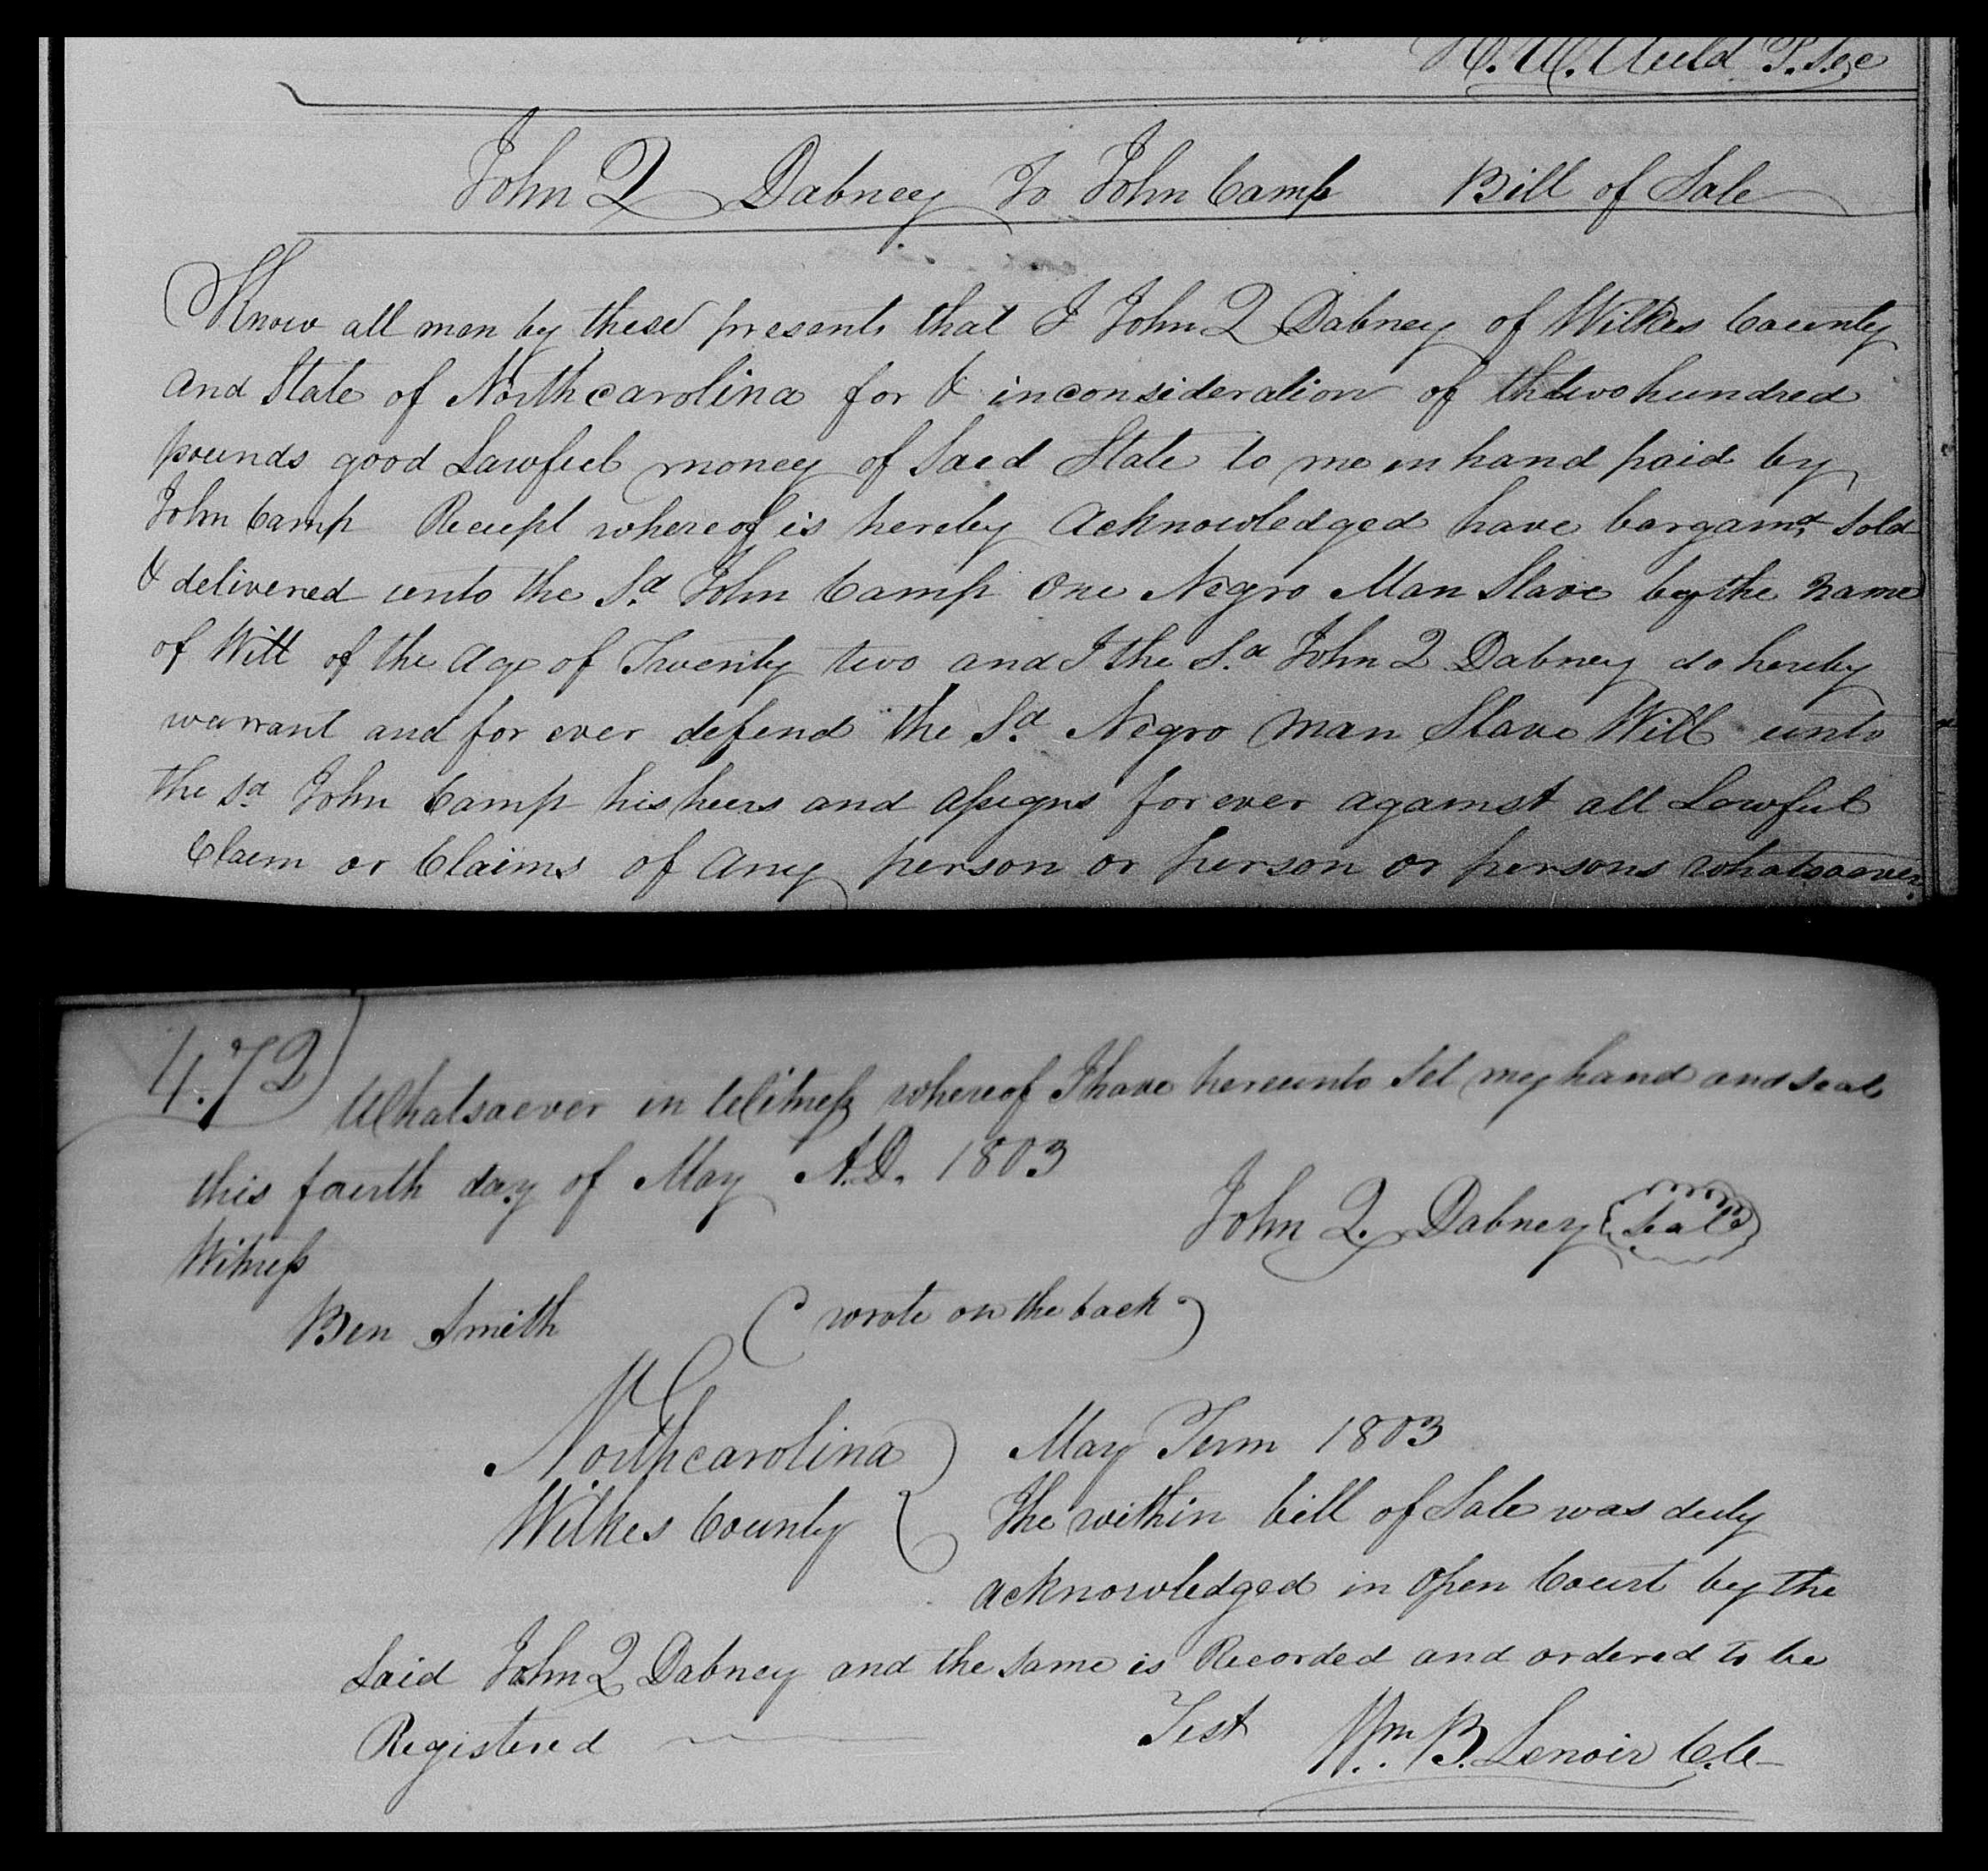 H. W. Auld P. Sec
John Q Dabney To John Camp Bill of Sale
Know all men by these presents that I John Q Dabney of Wilkes County
and State of Northcarolina for & inconsideration of thetwo hundred
pounds good Lawful money of Said State to me in hand paid by
John Camp Receipt whereof is hereby Acknowledged have bargamd, Sold
& delivered unto the Sd. John Camp One Negro Man Slave by the name
of Will of the Age of Twenty two and I the Sd. John Q Dabney do hereby
warrant and for ever defend the Sd. Negro man Slave Will unto
the sd. John Camp his heirs and assigns for ever against all Lawful
Claim or Claims of any person or person or persons whatsoever
472
Whatsoever in Witness whereof I have hereunto Set my hand and seal
this fourth day of May A.D. 1803
John Q. Dabney Seal
Witness
Ben Smith ( wrote on the back )
Northcarolina ) May Term 1803
Wilkes County { The within bill of Sale was duly
acknowledged in Open Court by the
Said John Q Dabney and the same is Recorded and ordered to be
Registered Test Wm. B. Lenoir C.C.